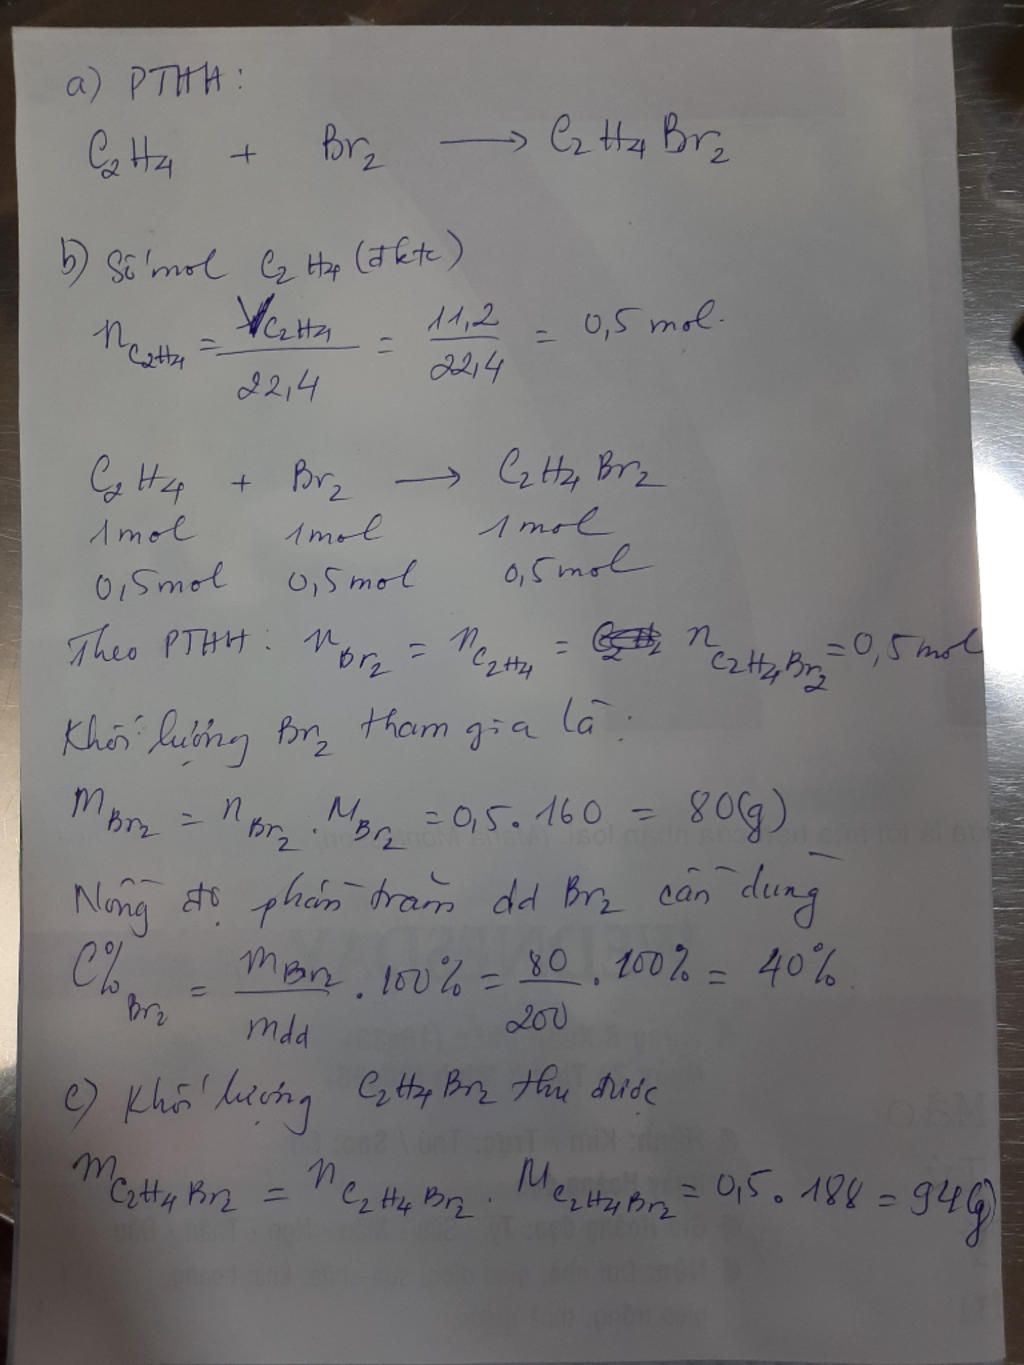 a) PTHH:
C₂H₄ + Br₂ → C₂H₄Br₂
b) Số mol C₂H₄ (đktc)
n_C₂H₄ = V_C₂H₄ / 22,4 = 11,2 / 22,4 = 0,5 mol.
C₂H₄ + Br₂ → C₂H₄Br₂
1mol 1mol 1mol
0,5mol 0,5mol 0,5mol
Theo PTHH: n_Br₂ = n_C₂H₄ = n_C₂H₄Br₂ = 0,5mol
Khối lượng Br₂ tham gia là:
m_Br₂ = n_Br₂ . M_Br₂ = 0,5 . 160 = 80(g)
Nồng độ phần trăm dd Br₂ cần dùng
C%_Br₂ = m_Br₂ / mdd . 100% = 80 / 200 . 100% = 40%.
c) Khối lượng C₂H₄Br₂ thu được
m_C₂H₄Br₂ = n_C₂H₄Br₂ . M_C₂H₄Br₂ = 0,5 . 188 = 94(g)